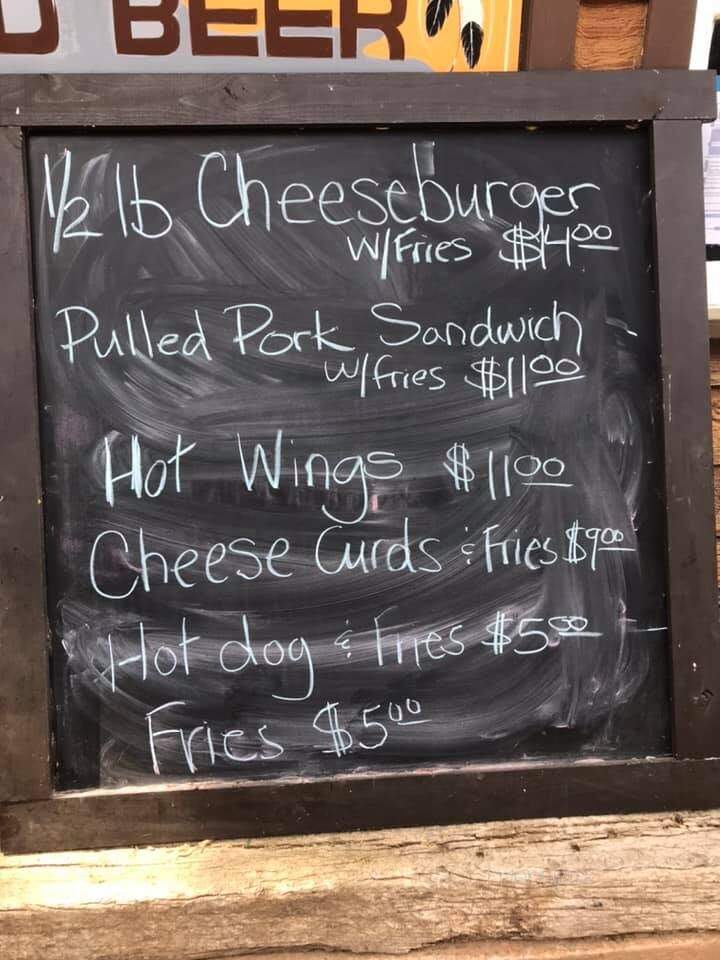 D BEER
1/2 lb Cheeseburger
W/Fries $14.00
Pulled Pork Sandwich
W/fries $11.00
Hot Wings $11.00
Cheese Curds & Fries $9.00
Hot dog & Fries $5.00
Fries $5.00